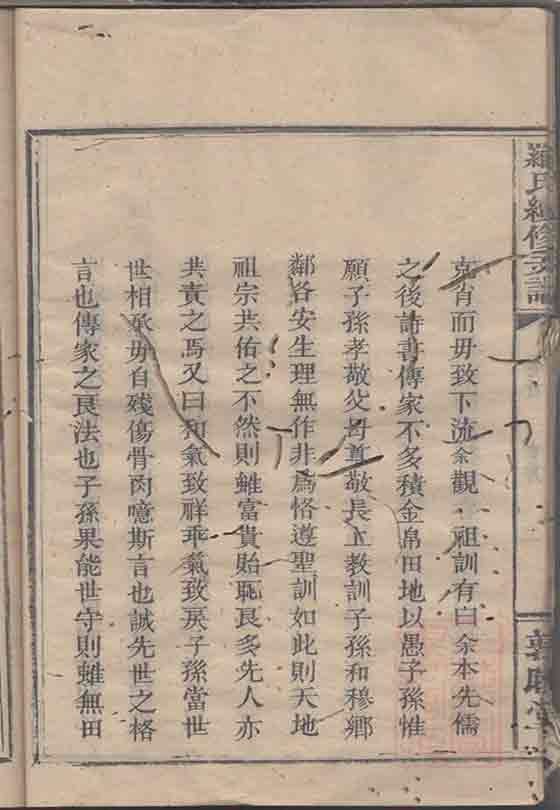 羅氏續修支譜
克肖而毋致下流余觀 祖訓有曰余本先儒
之後詩書傳家不多積金帛田地以愚子孫惟
願子孫孝敬父母尊敬長上教訓子孫和穆鄉
鄰各安生理無作非為恪遵聖訓如此則天地
祖宗共佑之不然則雖富貴貽恥良多先人亦
共責之焉又曰和氣致祥乖氣致戾子孫當世
世相承毋自殘傷骨肉噫斯言也誠先世之格
言也傳家之良法也子孫果能世守則雖無田